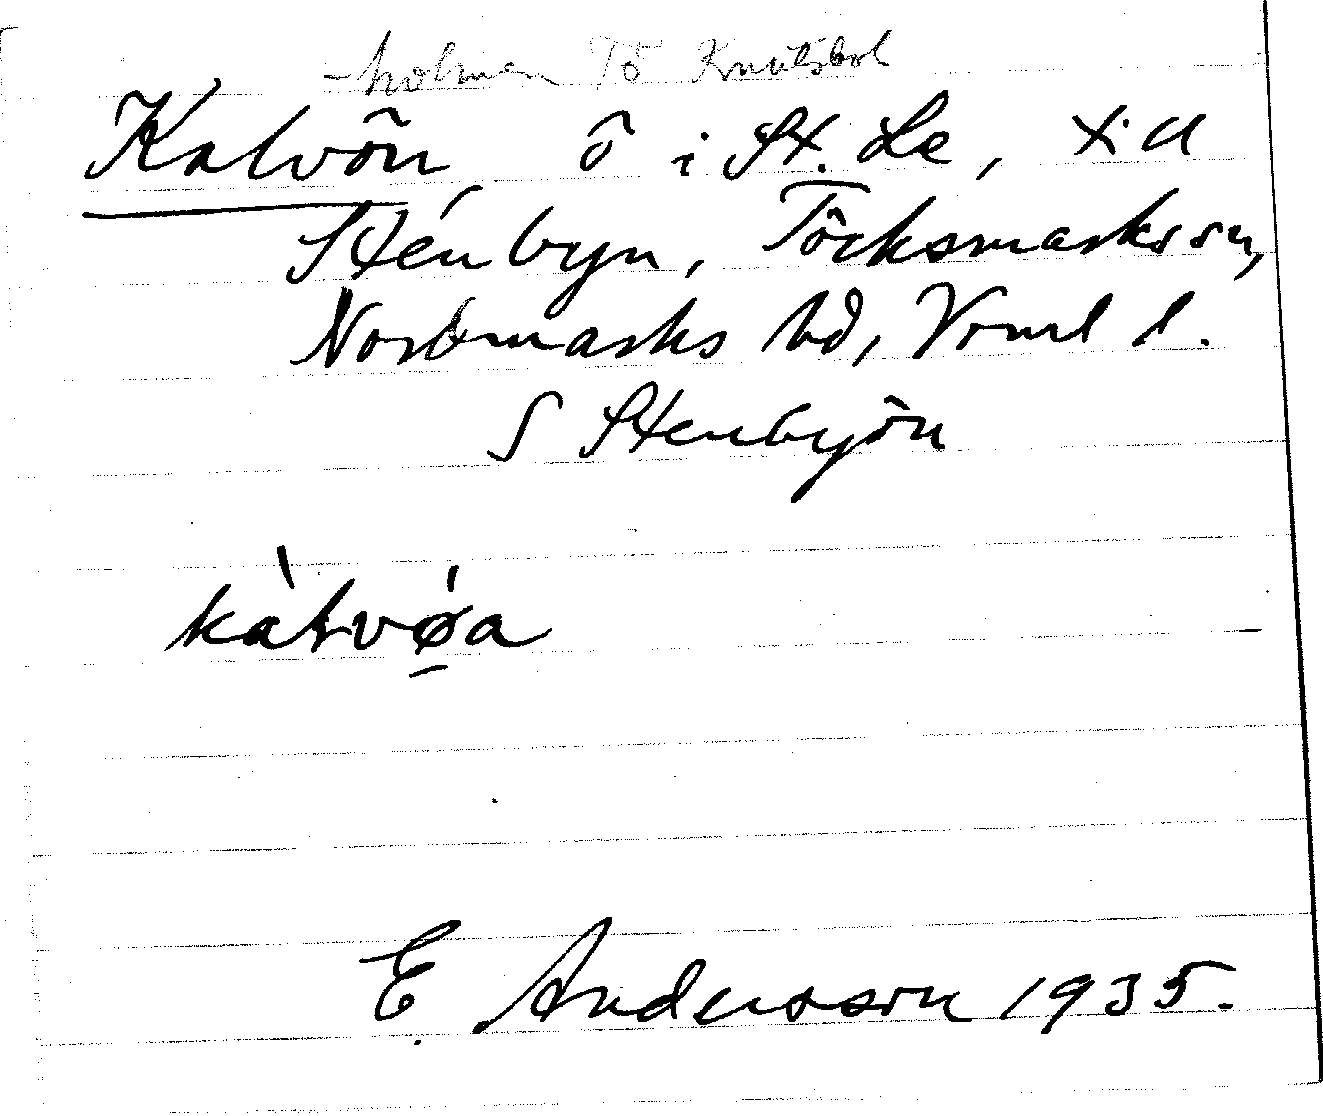 -holmen Tö Knutsbol
Kalvön ö i St. Le, till
Stenbyn, Töcksmarks sn,
Nordmarks hd, Vrml l.
S Stenbyön
kàɫvǿ̱a
E. Andersson 1935.